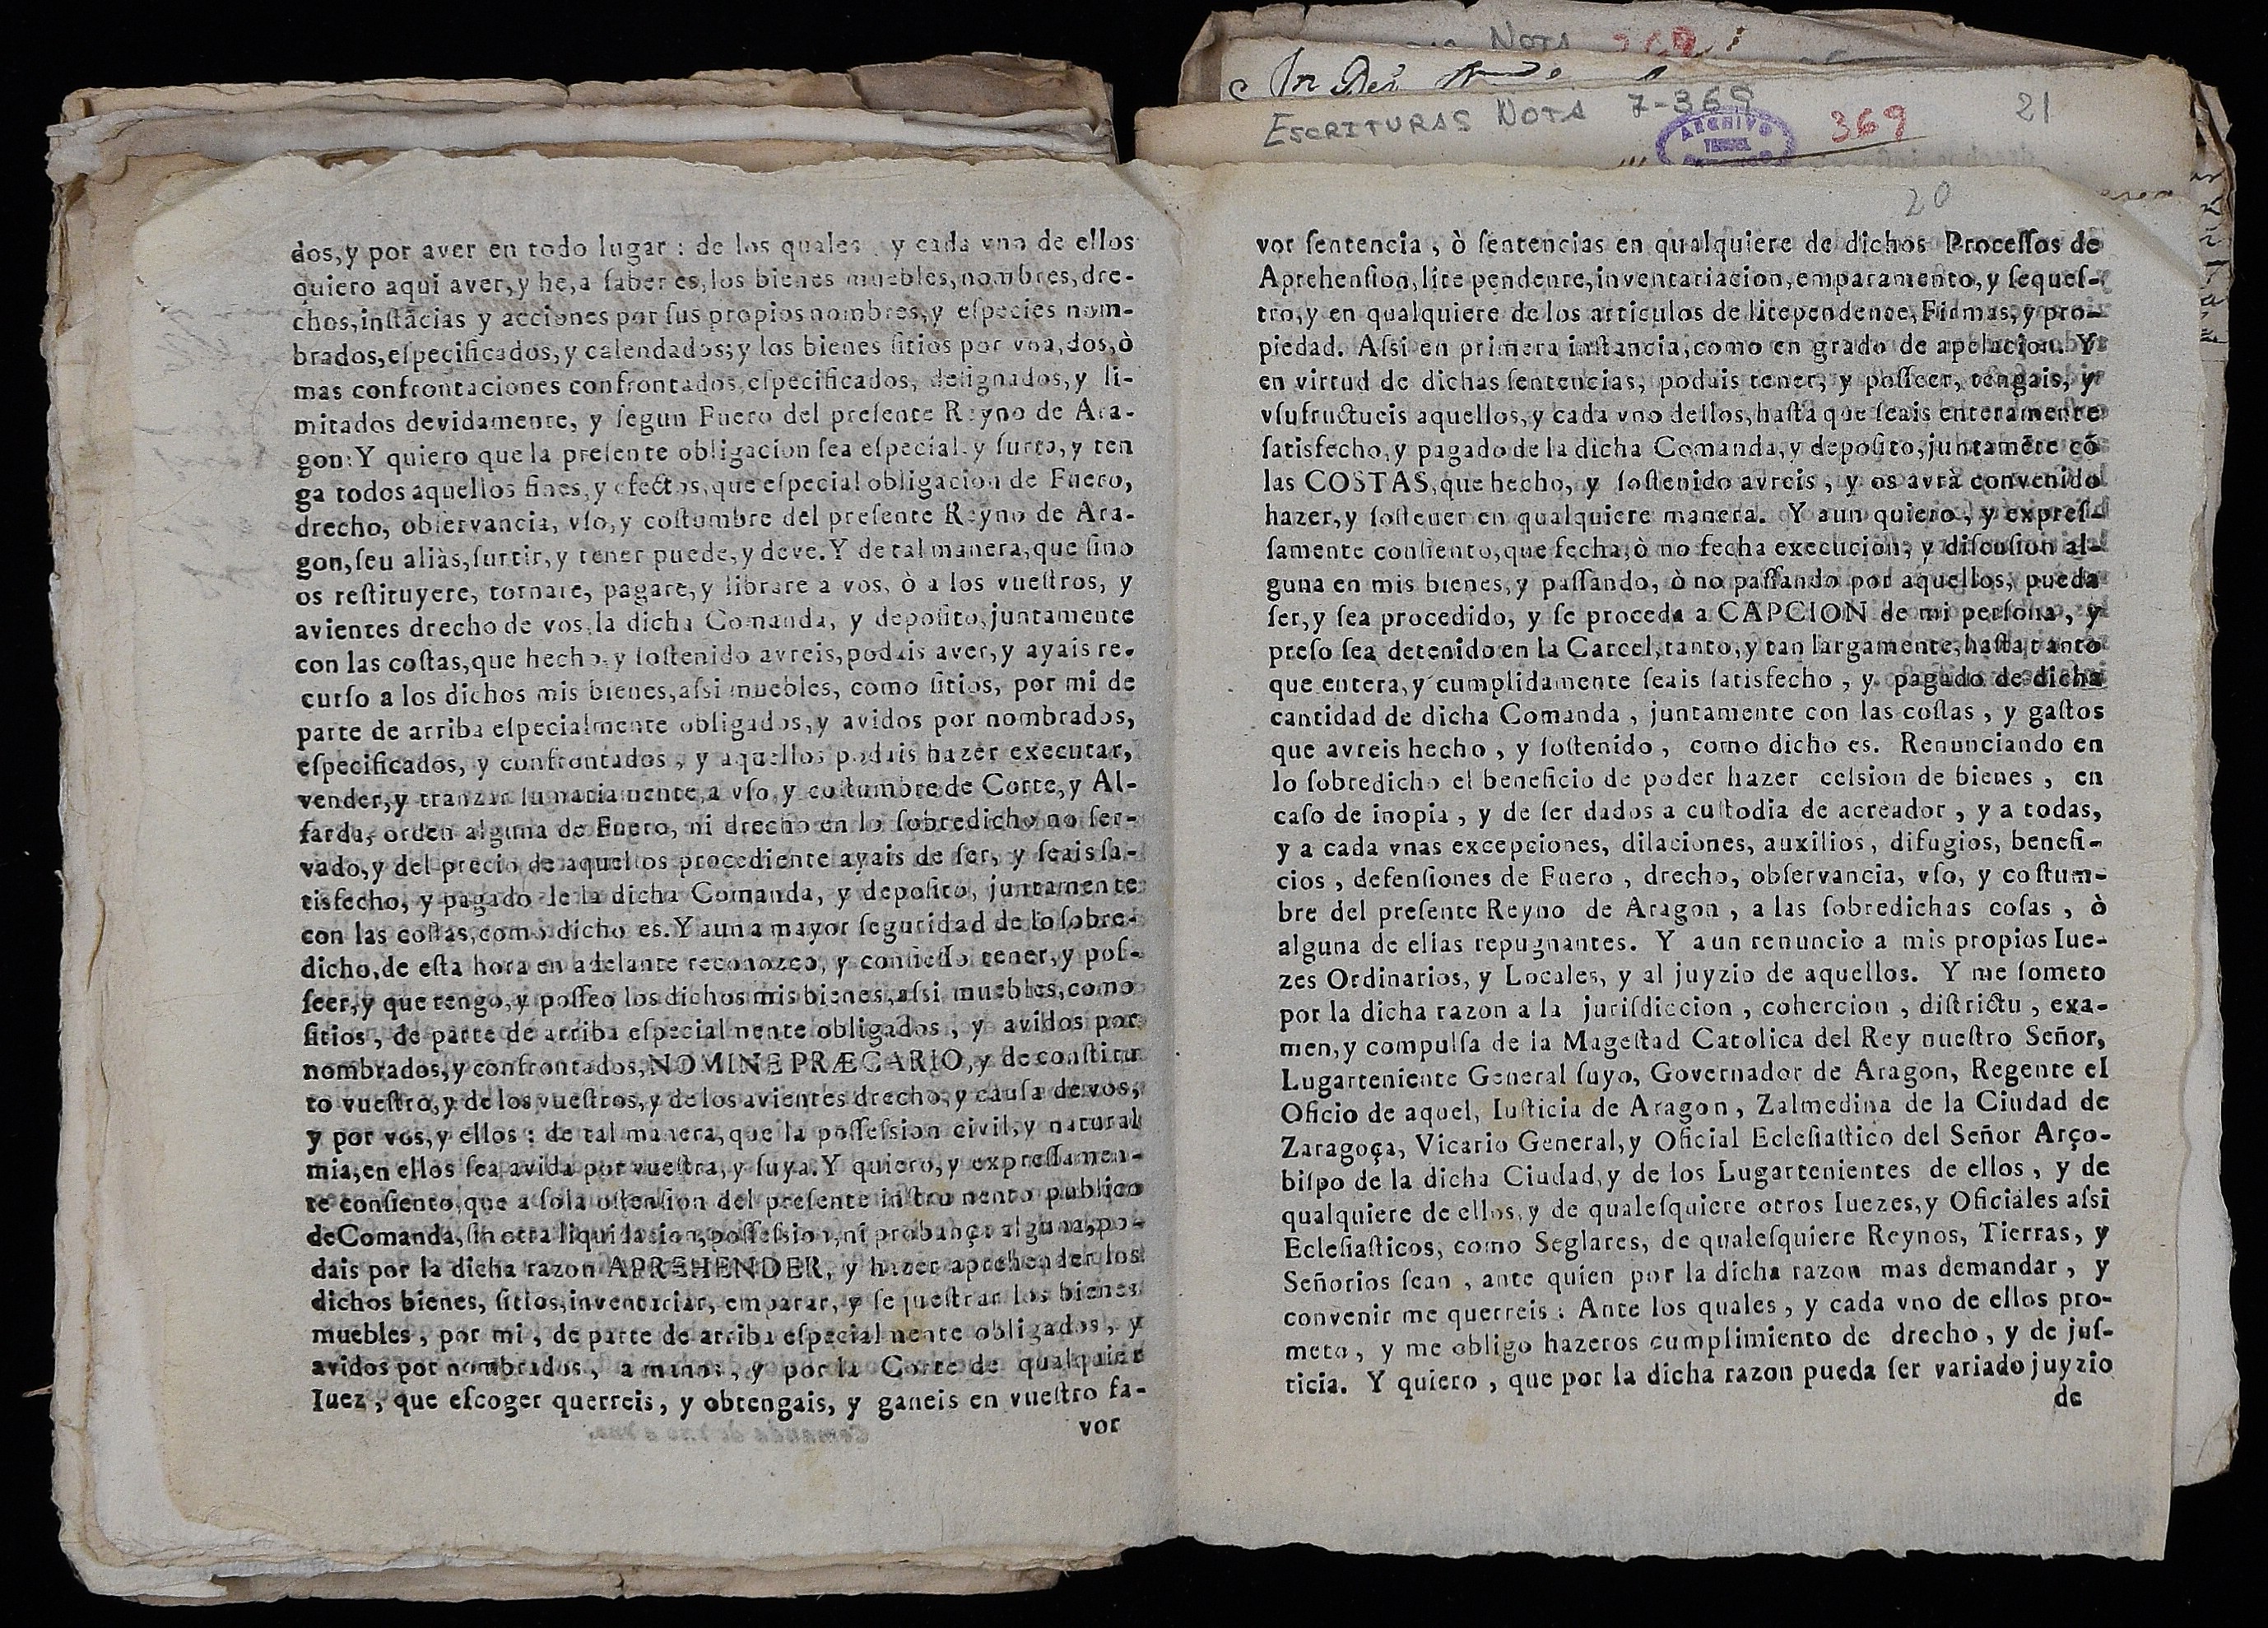 dos, y por aver en todo lugar : de los quales, y cada vno de ellos
quiero aqui aver, y he, a saber es, los bienes muebles, nombres, dre-
chos, instãcias y acciones por sus propios nombres, y especies nom-
brados, especificados, y calendados; y los bienes sitios por vna, dos, ò
mas confrontaciones confrontados, especificados, designados, y li-
mitados devidamente, y segun Fuero del presente Reyno de Ara-
gon: Y quiero que la presente obligacion sea especial, y surta, y ten
ga todos aquellos fines, y efectos, que especial obligacion de Fuero,
drecho, observancia, vso, y costumbre del presente Reyno de Ara-
gon, seu aliàs, surtir, y tener puede, y deve. Y de tal manera, que sino
os restituyere, tornare, pagare, y librare a vos, ò a los vuestros, y
avientes drecho de vos, la dicha Comanda, y deposito, juntamente
con las costas, que hecho, y sostenido avreis, podais aver, y ayais re-
curso a los dichos mis bienes, assi muebles, como sitios, por mi de
parte de arriba especialmente obligados, y avidos por nombrados,
especificados, y confrontados, y aquellos podais hazer executar,
vender, y tranzar sumariamente, a vso, y costumbre de Corte, y Al-
farda, orden alguna de Fuero, ni drecho en lo sobredicho no ser-
vado, y del precio de aquellos procediente ayais de ser, y seais sa-
tisfecho, y pagado de la dicha Comanda, y deposito, juntamente
con las costas, como dicho es. Y aun a mayor seguridad de lo sobre-
dicho, de esta hora en adelante reconozco, y confiesso tener, y pos-
seer, y que tengo, y posseo los dichos mis bienes, assi muebles, como
sitios, de parte de arriba especialmente obligados, y avidos por
nombrados, y confrontados, NOMINE PRÆCARIO, y de constitu
to vuestro, y de los vuestros, y de los avientes drecho, y causa de vos,
y por vos, y ellos : de tal manera, que la possession civil, y natural
mia, en ellos sea avida por vuestra, y suya. Y quiero, y expressamen-
te consiento, que a sola ostension del presente instrumento publico
de Comanda, sin otra liquidacion, possession, ni probança alguna, po-
dais por la dicha razon APREHENDER, y hazer aprehender los
dichos bienes, sitios, inventariar, emparar, y sequestrar los bienes
muebles, por mi, de parte de arriba especialmente obligados, y
avidos por nombrados, a manos, y por la Corte de qualquier
Iuez, que escoger querreis, y obtengais, y ganeis en vuestro fa-
vor
In Dei
ESCRITURAS NOTA 7-369
369
21
ARCHIVO
TERUEL
20
vor sentencia, ò sentencias en qualquiere de dichos Processos de
Aprehension, lite pendente, inventariacion, emparamento, y seques-
tro, y en qualquiere de los articulos de litependente, Firmas, y pro-
piedad. Assi en primera instancia, como en grado de apelacion. Y
en virtud de dichas sentencias, podais tener, y posseer, tengais, y
vsufructueis aquellos, y cada vno dellos, hasta que seais enteramente
satisfecho, y pagado de la dicha Comanda, y deposito, juntamẽte cõ
las COSTAS, que hecho, y sostenido avreis, y os avrà convenido
hazer, y sostener en qualquiere manera. Y aun quiero, y expres-
samente consiento, que fecha, ò no fecha execucion, y discusion al-
guna en mis bienes, y passando, ò no passando por aquellos, pueda
ser, y sea procedido, y se proceda a CAPCION de mi persona, y
preso sea detenido en la Carcel, tanto, y tan largamente, hasta tanto
que entera, y cumplidamente seais satisfecho, y pagado de dicha
cantidad de dicha Comanda, juntamente con las costas, y gastos
que avreis hecho, y sostenido, como dicho es. Renunciando en
lo sobredicho el beneficio de poder hazer cession de bienes, en
caso de inopia, y de ser dados a custodia de acreador, y a todas,
y a cada vnas excepciones, dilaciones, auxilios, difugios, benefi-
cios, defensiones de Fuero, drecho, observancia, vso, y costum-
bre del presente Reyno de Aragon, a las sobredichas cosas, ò
alguna de ellas repugnantes. Y aun renuncio a mis propios Iue-
zes Ordinarios, y Locales, y al juyzio de aquellos. Y me someto
por la dicha razon a la jurisdiccion, cohercion, districtu, exa-
men, y compulsa de la Magestad Catolica del Rey nuestro Señor,
Lugarteniente General suyo, Governador de Aragon, Regente el
Oficio de aquel, Iusticia de Aragon, Zalmedina de la Ciudad de
Zaragoça, Vicario General, y Oficial Eclesiastico del Señor Arço-
bispo de la dicha Ciudad, y de los Lugartenientes de ellos, y de
qualquiere de ellos, y de qualesquiere otros Iuezes, y Oficiales assi
Eclesiasticos, como Seglares, de qualesquiere Reynos, Tierras, y
Señorios sean, ante quien por la dicha razon mas demandar, y
convenir me querreis : Ante los quales, y cada vno de ellos pro-
meto, y me obligo hazeros cumplimiento de drecho, y de jus-
ticia. Y quiero, que por la dicha razon pueda ser variado juyzio
de